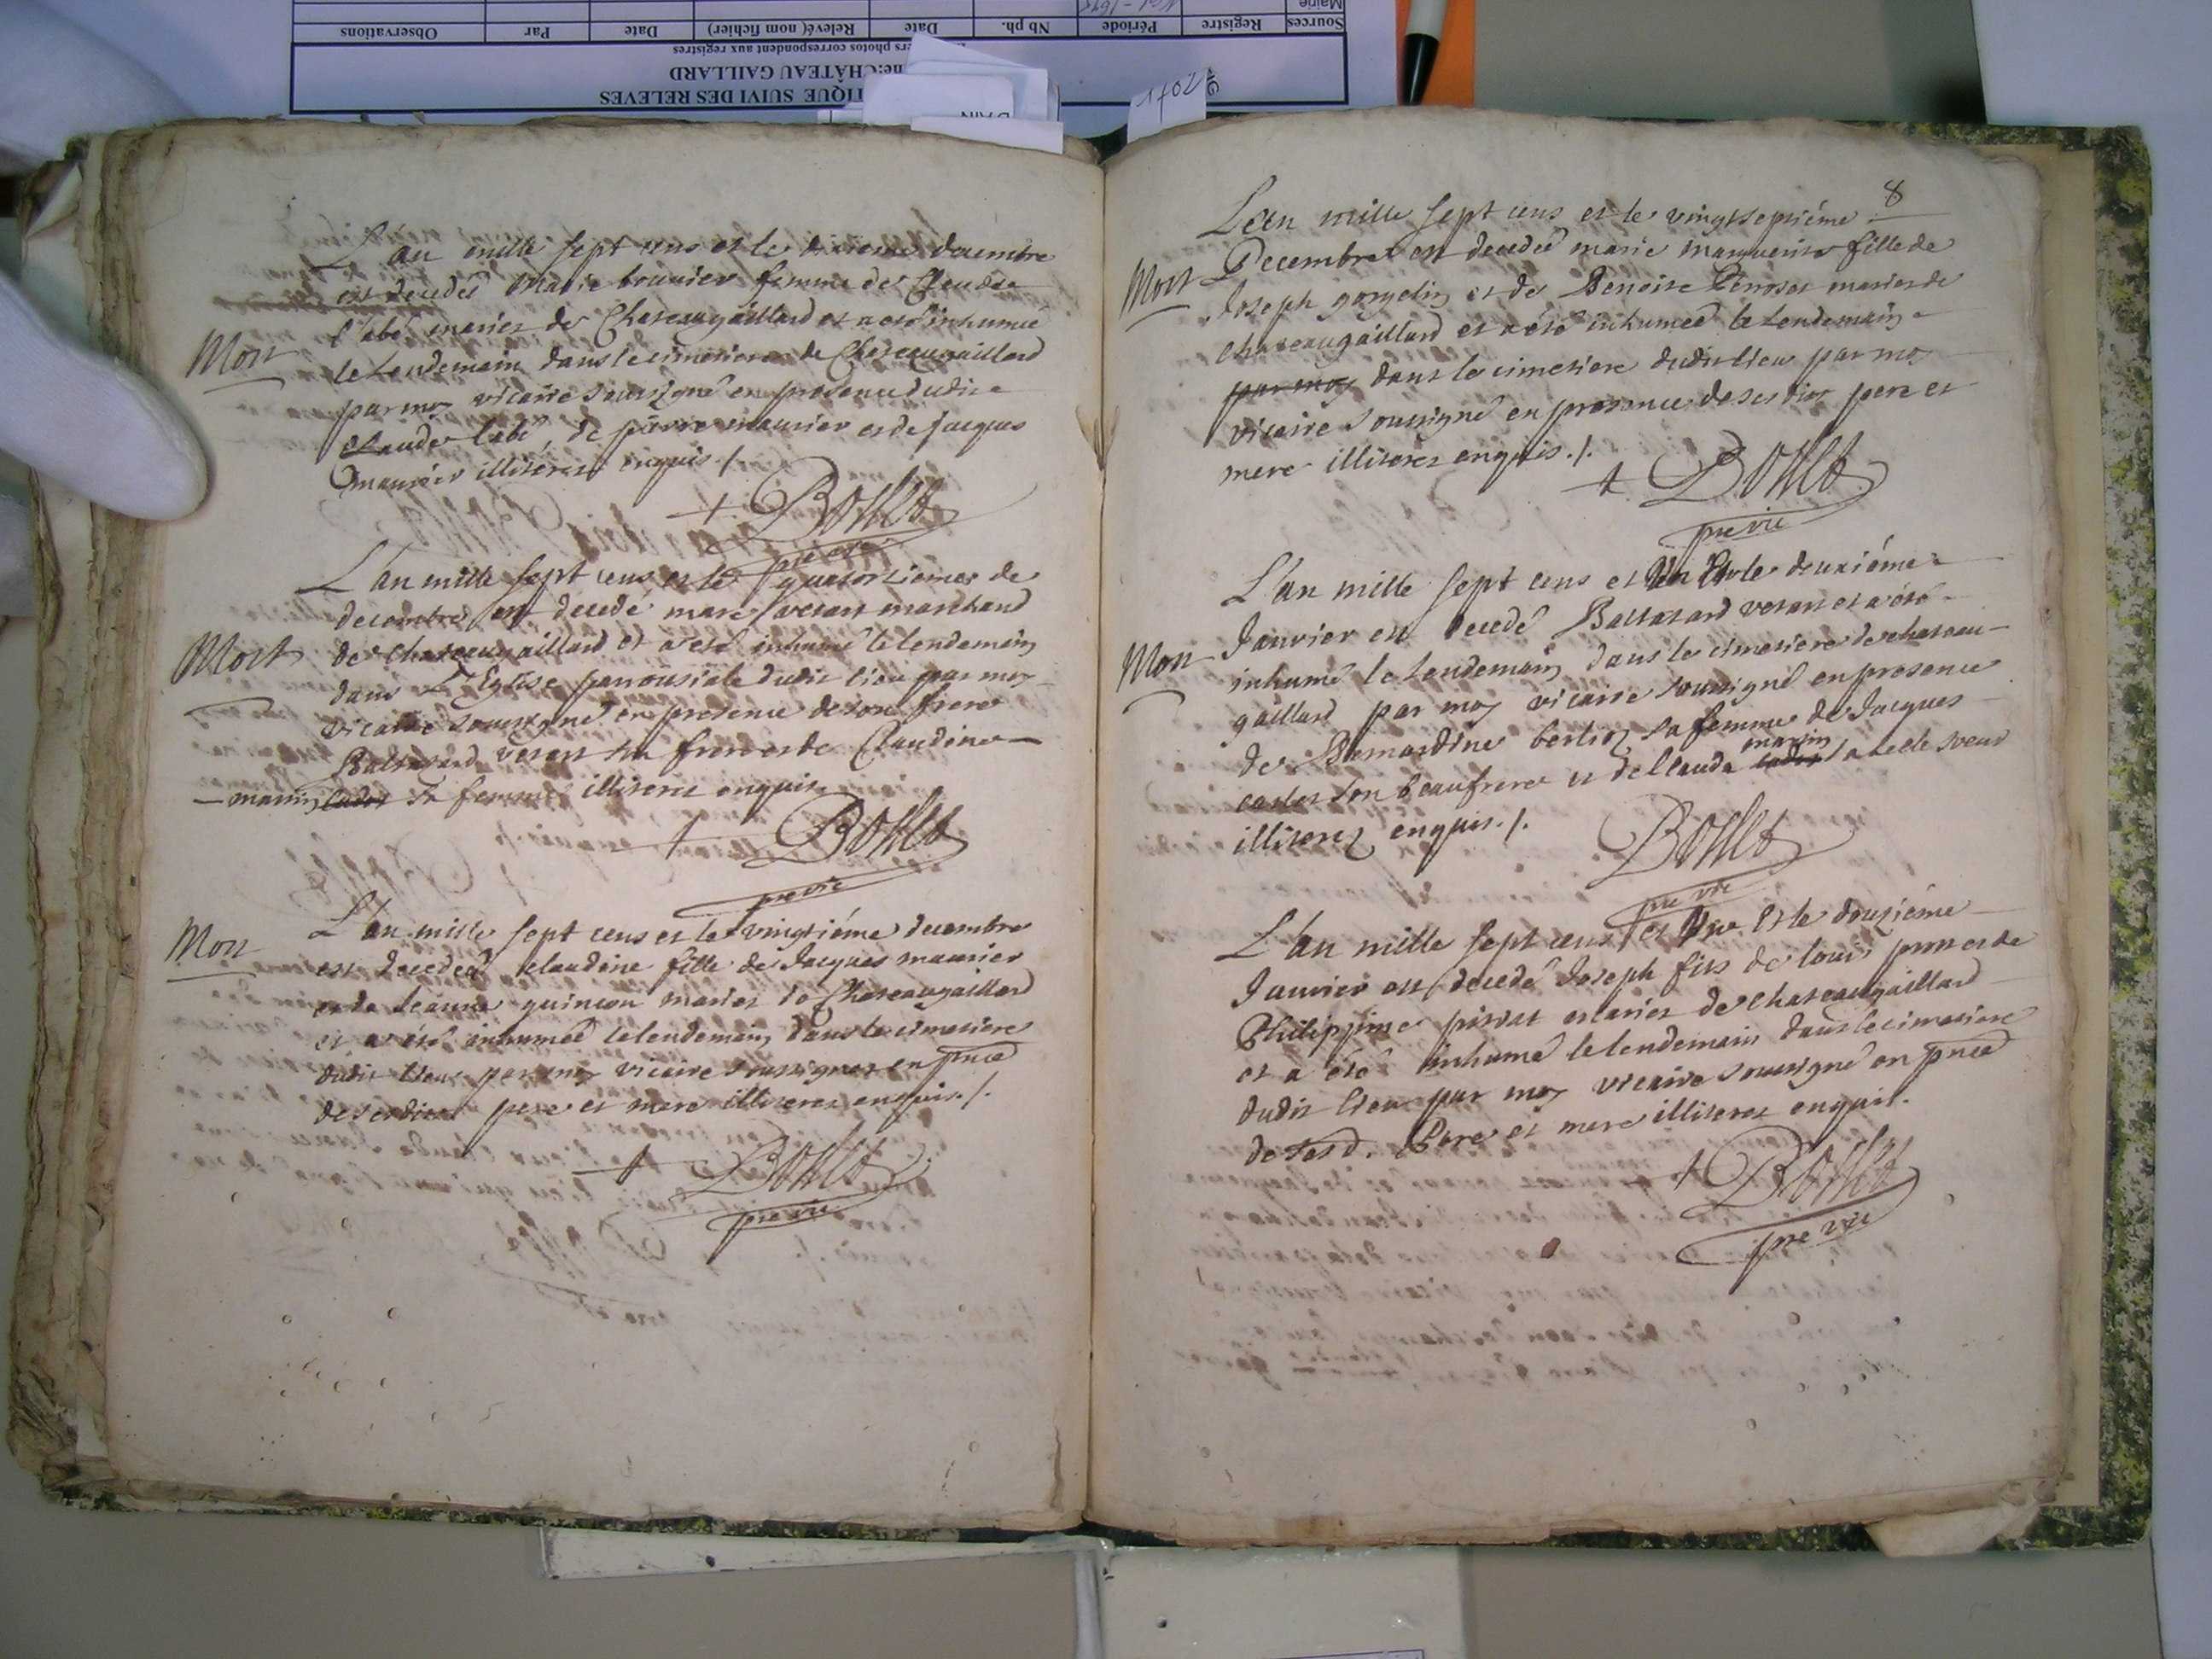 Sources Registre Période Nb ph. Date Relevé( nom fichier) Date Par Observations
Mairie
photos correspondent aux registres
CHÂTEAU GAILLARD
TIQUE SUIVI DES RELEVES
L'an mille sept cens et le dixieme decembre
est decedée Marie bouvier femme de Claude
l'abé mariés de Chateaugaillard et a eté inhumée
Mort
le Lendemain dans le cimetiere de Chateaugaillard
par moy vicaire soussigné en presence dudit
Claude labé, de pierre maurier et de jacques
maurier illiterez enquis ./.
+ Bolliet
pre vic
L'an mille sept cens et le quatorzieme de
decembre est decedé marc verant marchand
Mort
de Chateaugaillard et a eté inhumé le lendemain
dans L'Eglise parroissiale dudit lieu par moy
vicaire soussigné en presence de son frere
Baltazard verant son frere et de Claudine
mamin sa femme illiterez enquis
+ Bolliet
pre vic
L'an mille sept cens et le vingtiéme decembre
Mort
est decedée claudine fille de Jacques maurier
et de Jeanne quinson mariez de Chateaugaillard
et a eté inhumée le lendemain dans le cimetiere
dudit Lieu par moy vicaire soussigné en pnce
de sesdits pere et mere illiterez enquis ./.
+ Bolliet
pre vic
8
L'an mille sept cens et le vingtseptiéme
Decembre est decedée marie marguerite fille de
Mort
Joseph et de Benoite mariez de
chateaugaillard et a été inhumée le Lendemain
par moy dans le cimetiere dudit lieu par moy
vicaire soussigné en presence de ses dits pere et
mere illiterez enquis ./.
+ Bolliet
pre vic
L'an mille sept cens et Un Et le deuxiéme
Janvier est decedé Baltazard verant et a été
Mort
inhumé le Lendemain dans le cimetiere de chateau-
gaillard par moy vicaire soussigné en presence
de Bernardine berlioz sa femme de Jacques
son beaufrere et de Clauda mamin sa belle soeur
illiterez enquis ./.
Bolliet
pre vic
L'an mille sept cens et Une Et le douziéme
Janvier est decedé Joseph fils de louis et de
Philippine mariez de chateaugaillard
et a été inhumé le lendemain dans le cimetiere
dudit lieu par moy vicaire soussigné en pnce
de sesd. Pere et mere illiterez enquis.
+ Bolliet
pre vic